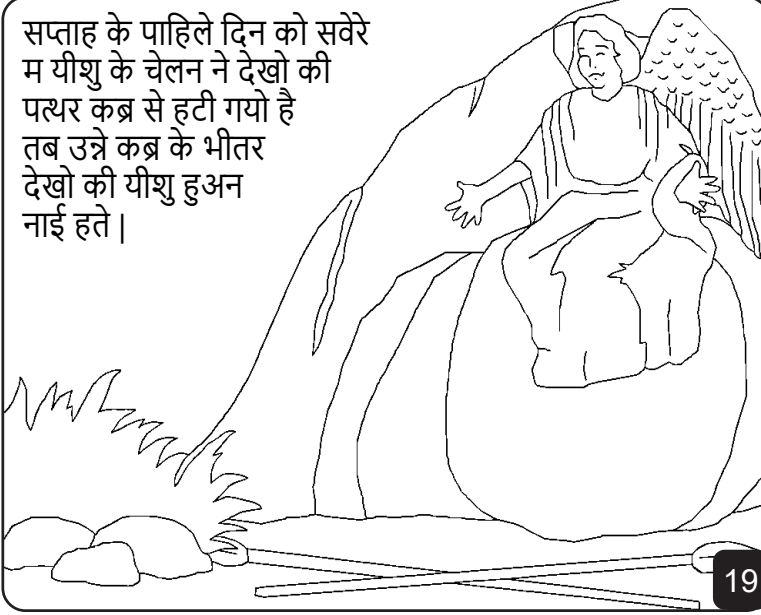 सप्ताह के पाहिले दिन को सवेरे
म यीशु के चेलन ने देखो की
पत्थर कब्र से हटी गयो है
तब उन्ने कब्र के भीतर
देखो की यीशु हुअन
नाई हते |
19